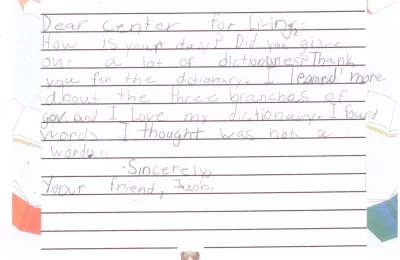 Dear Center for Living,
How is your day? Did you give
out a lot of dictionaries? Thank
you for the dictionary. I learned more
about the three branches of
gov. and I love my dictionary. I found
words I thought was not a
word.
Sincerely,
Your friend, Jacob.